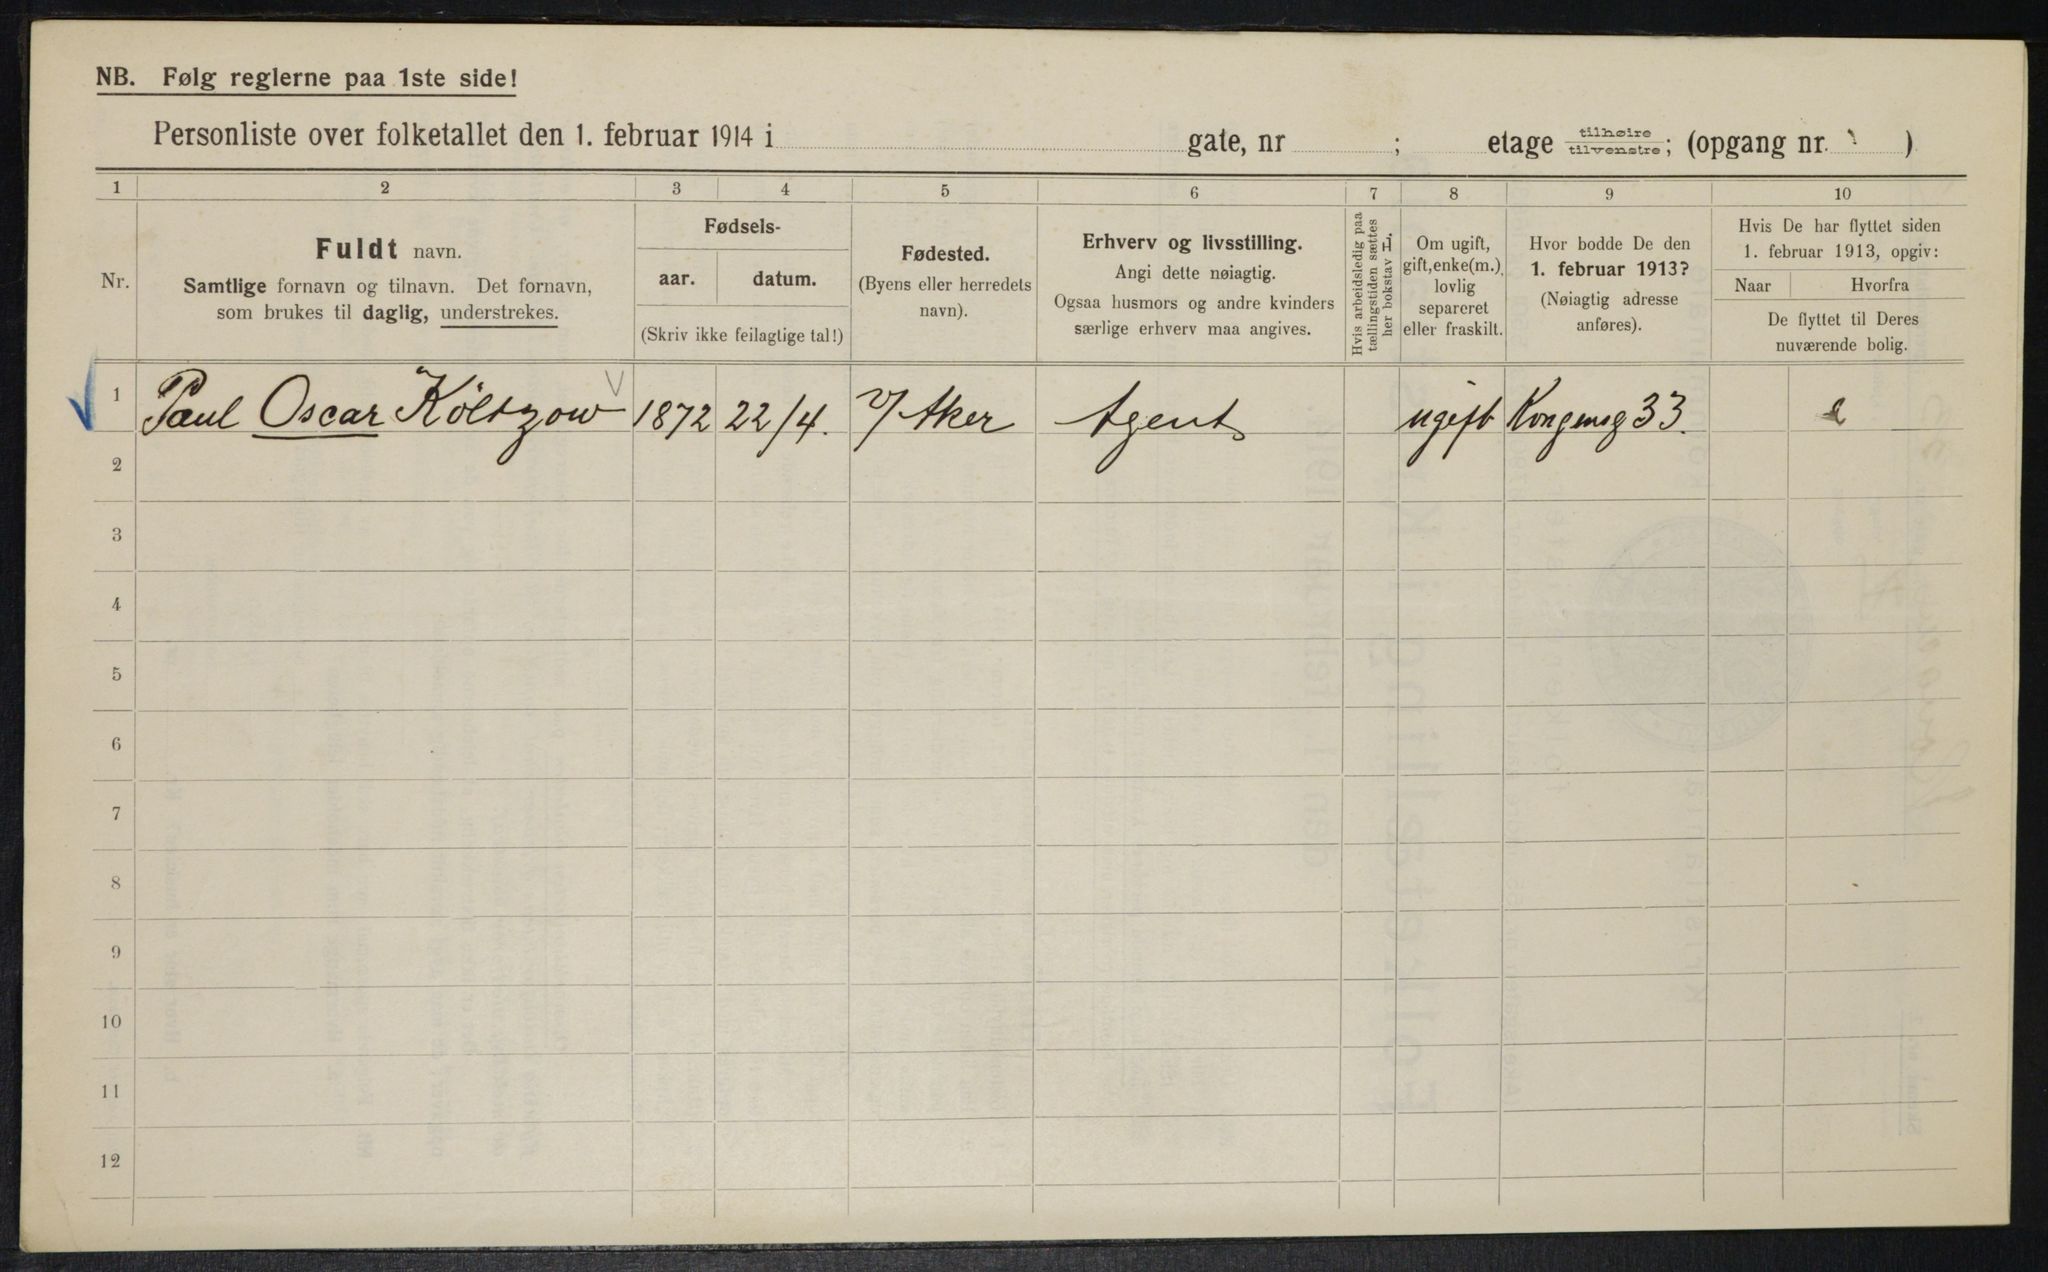 NB. Følg reglerne paa 1ste side!
Personliste over folketallet den 1. februar 1914 i gate, nr ; etage tilhøire tilvenstre; (opgang nr. )
1 2 3 4 5 6 7 8 9 10
Nr.
Fuldt navn.
Samtlige fornavn og tilnavn. Det fornavn,
som brukes til daglig, understrekes.
Fødsels-
aar. datum.
(Skriv ikke feilagtige tal!)
Fødested.
(Byens eller herredets
navn).
Erhverv og livsstilling.
Angi dette nøiagtig.
Ogsaa husmors og andre kvinders
særlige erhverv maa angives.
Hvis arbeidsledig paa
tællingstiden sættes
her bokstav L.
Om ugift,
gift, enke(m.),
lovlig
separeret
eller fraskilt.
Hvor bodde De den
1. februar 1913?
(Nøiagtig adresse
anføres).
Hvis De har flyttet siden
1. februar 1913, opgiv:
Naar Hvorfra
De flyttet til Deres
nuværende bolig.
1 Paul Oscar Költzow 1872 22/4. V/Aker Agent ugift Kongensg 33.
2
3
4
5
6
7
8
9
10
11
12